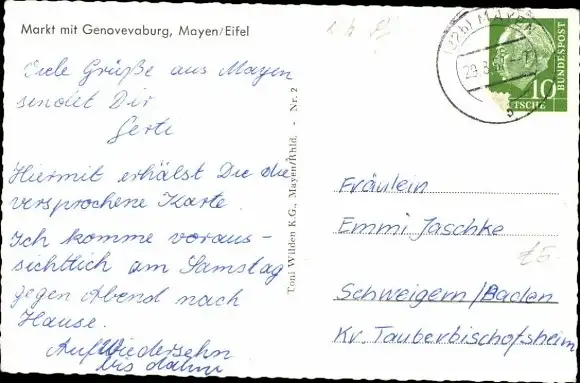 Markt mit Genovevaburg, Mayen/Eifel
Viele Grüße aus Mayen
sendet Dir
Gerti
Hiermit erhälst Du die
versprochene Karte.
Ich komme voraus-
sichtlich am Samstag
gegen Abend nach
Hause.
Auf Wiedersehn
bis dahin
Toni Wilden K.G., Mayen/Rhld. - Nr. 2
MAYEN
10
BUNDESPOST
TSCHE
b
Fräulein
Emmi Jaschke
Schweigern/Baden
Kr. Tauberbischofsheim